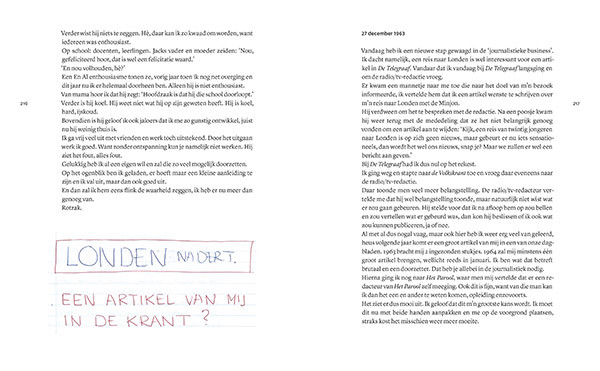 Verder wist hij niets te zeggen. Hè, daar kan ik zo kwaad om worden, want
iedereen was enthousiast.
Op school: docenten, leerlingen. Jacks vader en moeder zeiden: 'Nou,
gefeliciteerd hoor, dat is wel een felicitatie waard.'
'En nou volhouden, hè?'
Ken En Al enthousiasme tonen ze, vorig jaar toen ik nog net overging en
dit jaar nu ik er helemaal doorheen ben. Alleen hij is niet enthousiast.
Van mama hoor ik dat hij zegt: 'Hoofdzaak is dat hij die school doorloopt.'
Verder is hij koel. Hij weet niet wat hij op zijn geweten heeft. Hij is koel,
hard, ijskoud.
Bovendien is hij geloof ik ook jaloers dat ik me zo gunstig ontwikkel, juist
nu hij weinig thuis is.
Ik ga vrij veel uit met vrienden en werk toch uitstekend. Door het uitgaan
werk ik goed. Want zonder ontspanning kun je namelijk niet werken. Hij
ziet het four, alles four.
Gelukkig heb ik al een eigen wil en zal die zo veel mogelijk doorzetten.
Op het ogenblik ben ik geladen, er hoeft maar een kleine aanleiding te
zijn en ik val uit, maar dan ook goed uit.
En dan zal ik hem eens flink de waarheid zeggen, ik heb er nu meer dan
genoeg van.
Rotzak.
216
LONDEN NADERT.
EEN ARTIKEL VAN MIJ
IN DE KRANT?
27 december 1963
Vandaag heb ik een nieuwe stap gewaagd in de 'journalistieke business'.
Ik dacht namelijk, een reis naar Londen is wel interessant voor een arti-
kel in De Telegraaf. Vandaar dat ik vandaag bij De Telegraaf langsging en
om de radio/tv-redactie vroeg.
Er kwam een mannetje naar me toe die naar het doel van m'n bezoek
informeerde, ik vertelde hem dat ik een artikel wenste te schrijven over
m'n reis naar Londen met de Minjon.
Hij verdween om het te bespreken met de redactie. Na een poosje kwam
hij weer terug met de mededeling dat ze het niet belangrijk genoeg
vonden om een artikel aan te wijden: 'Kijk, een reis van twintig jongeren
naar Londen is op zich geen nieuws, maar gebeurt er nu iets sensatio-
neels, dan is dat wel nieuws, snap je? Maar we zullen er wel een
bericht aan geven.'
Bij De Telegraaf had ik dus nul op het rekest.
Ik ging weg en stapte naar de Volkskrant toe en vroeg daar eveneens naar
de radio/tv-redactie.
Daar toonde men veel meer belangstelling. De radio/tv-redacteur ver-
telde me dat hij wel belangstelling toonde, maar natuurlijk niet wist wat
er zou gaan gebeuren. Hij stelde voor dat ik na afloop hem op zou bellen
en zou vertellen wat er gebeurd was, dan kon hij beslissen of ik ook wat
zou kunnen publiceren, ja of nee.
Al met al dus nogal vaag, maar ook hier heb ik weer erg veel van geleerd,
heus volgend jaar komt er een groot artikel van mij in een van onze dag-
bladen. 1963 bracht mij 2 ingezonden stukjes. 1964 zal mij minstens één
groot artikel brengen, wellicht reeds in januari. Ik ben wat dat betreft
brutaal en een doorzetter. Dat heb je allebei in de journalistiek nodig.
Hierna ging ik nog naar Het Parool, waar men mij vertelde dat er een re-
dacteur van Het Parool zelf meeging. Ook dit is fijn, want van die man kan
ik dan het een en ander te weten komen, opleiding enzovoorts.
Het ziet er dus mooi uit. Ik geloof dat dit m'n grootste kans wordt. Ik moet
dit nu met beide handen aanpakken en me op de voorgrond plaatsen,
straks kost het misschien weer meer moeite.
217